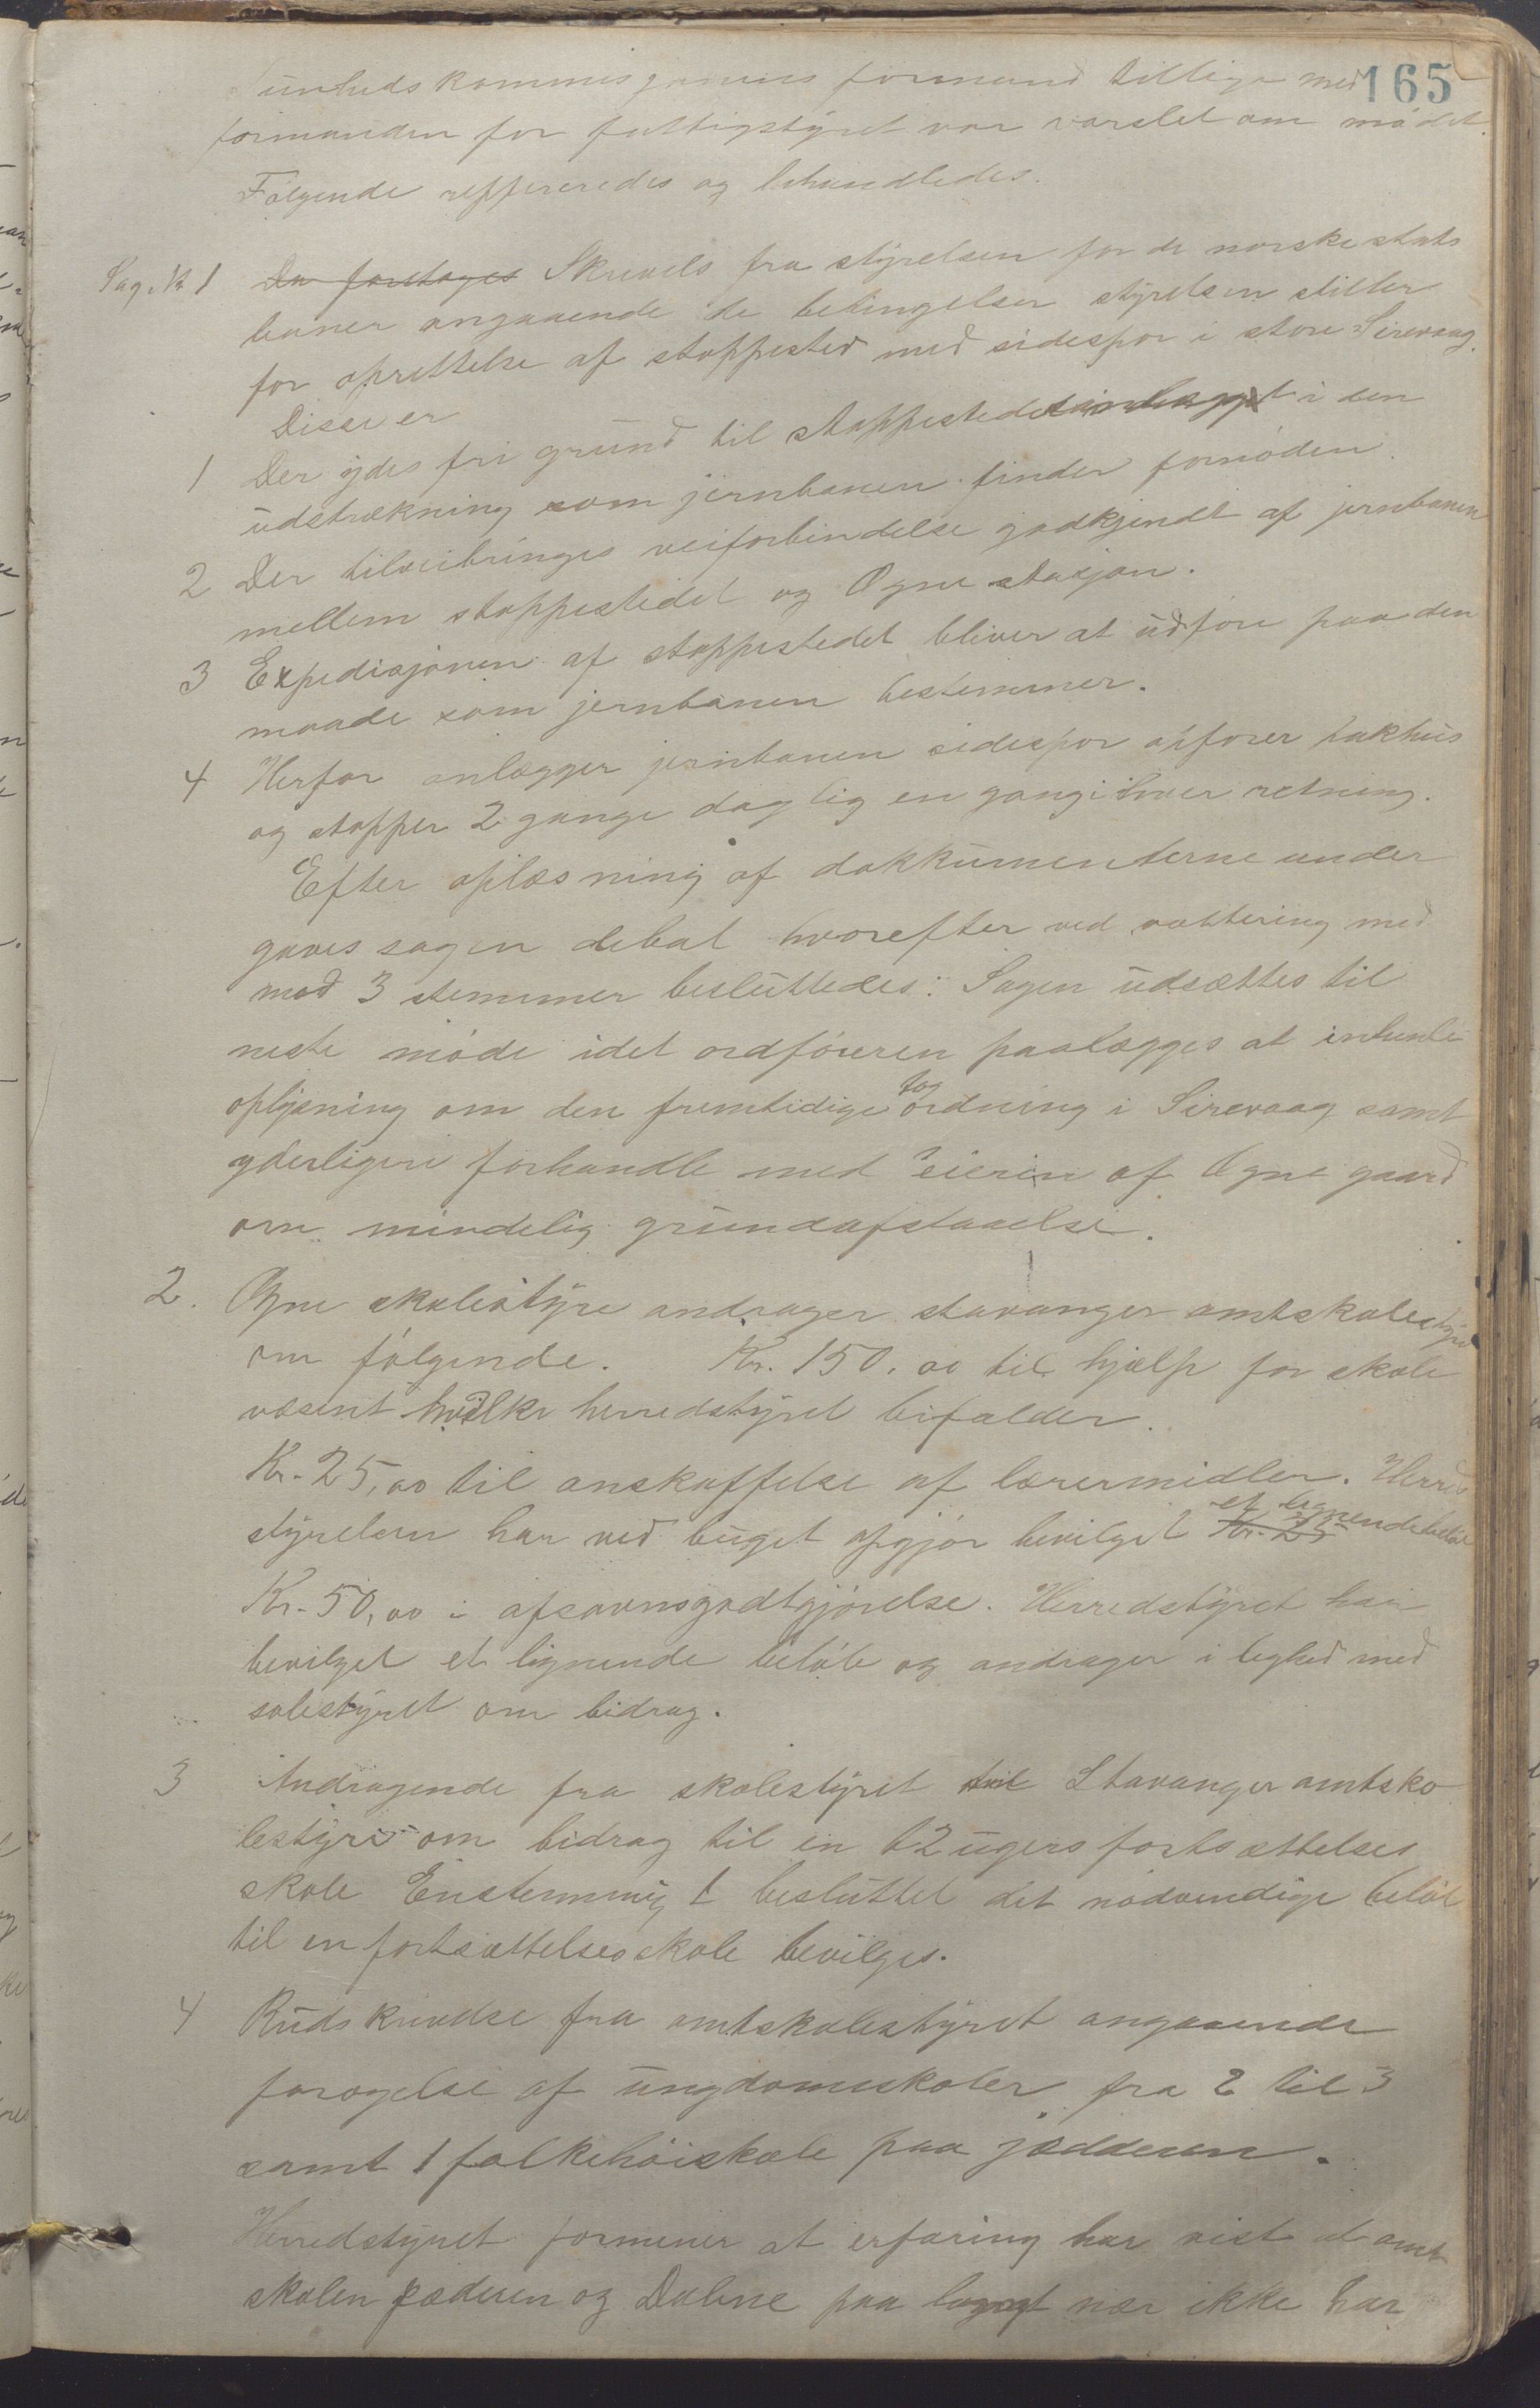 165
sundhedskommisjonens formand tillige med
formanden for fattigstyret var varslet om mødet.
Følgende reffereredes og behandledes.
Sag. Nr 1 Da foretoges Skrivels fra styrelsen for de norske stats
baner angaaende de betingelser styrelsen stiller
for oprettelse af stoppested med sidespor i store Sirevaag.
Disse er
1 Der ydes fri grund til stoppestedet i den
udstrækning som jernbanen finder fornøden.
2 Der tilveibringes veiforbindelse godkjendt af jernbanen
mellem stoppestedet og Ogne stasjon.
3 Expedisjonen af stoppestedet bliver at udføre paa den
maade som jernbanen bestemmer.
4 Herfor anlægger jernbanen sidespor opfører pakhus
og stopper 2 gange daglig en gang i hver retning.
Efter oplæsning af dokkumenterne under
gaves sagen debat hvorefter ved vottering med
mod 3 stemmer besluttedes: Sagen udsættes til
neste møde idet ordføreren paalægges at indhente
oplysning om den fremtidige tog ordning i Sirevaag samt
yderligere forhandle med eieren af Ogne gaard
om mindelig grundafstaaelse.
2. Ogne skolestyre andrager stavanger amtskolestyre
om følgende. Kr. 150,00 til hjælp for skole
væsent hvilke herredstyret bifalder.
Kr. 25,00 til anskaffelse af lærermidler. Herreds
styrelsen har ved buget opgjør bevilget Kr. 25 et lignende beløb
Kr. 50,00 i afsavnsgodtgjørelse. Herredstyret har
bevilget et lignende beløb og andrager i leghed med
solestyret om bidrag.
3 Andragende fra skolestyret til Stavanger amtsko
lestyre om bidrag til en 12 ugers fortsættelses
skole Enstemmigt besluttet det nødvendige beløb
til en fortsættelsesskole bevilges.
4 Rudskrivelse fra amtskolestyret angaaende
forøgelse af ungdomsskoler fra 2 til 3
samt 1 folkehøiskole paa jædderen.
Herredstyret formener at erfaring har vist at amt
skolen Jæderen og Dalene paa langt nær ikke har